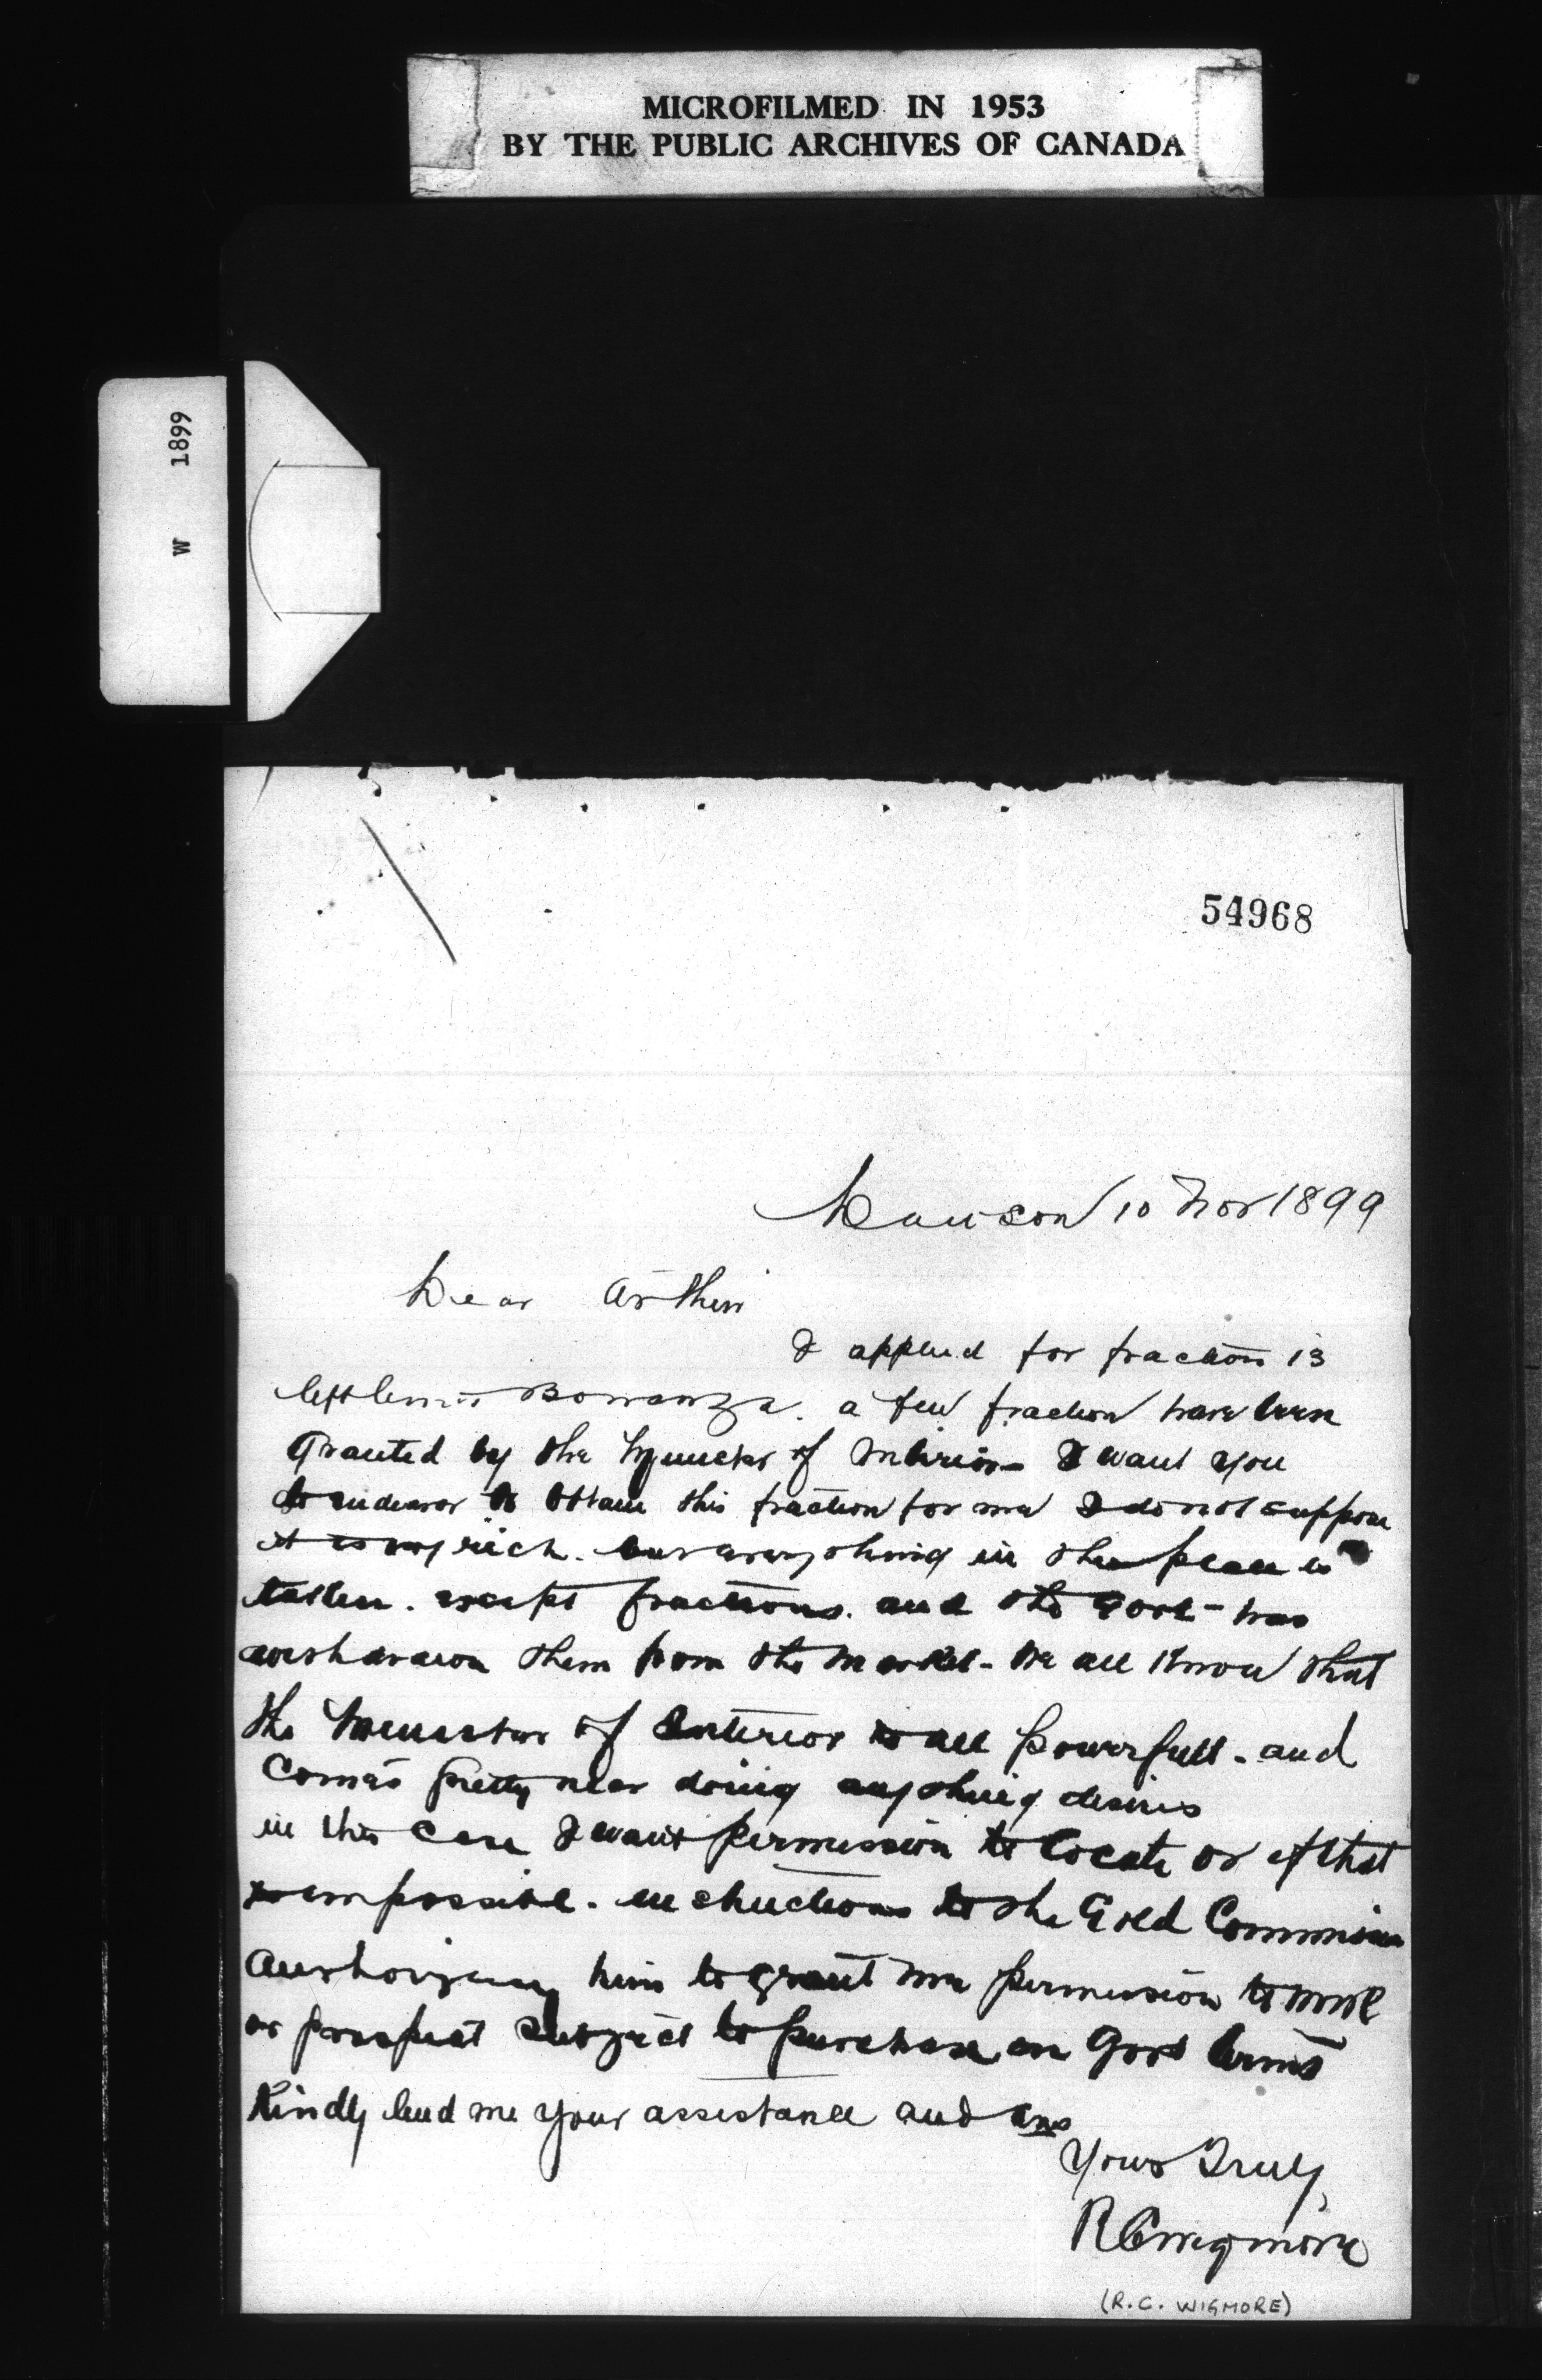 MICROFILMED IN 1953
BY THE PUBLIC ARCHIVES OF CANADA
W 1899
54968
Dawson 10 Nov 1899
Dear Arthur
I applied for fraction 13
left limit Bonanza. a few fraction have been
Granted by the Minister of Interior I want you
to endeavor to obtain this fraction for me I do not suppose
it is very rich. but everything in the place is
taken. except fractions. and the Govt - has
withdrawn them from the market - We all know that
the Minister of Interior is all powerfull - and
comes pretty near doing anything desires
in this case I want permission to locate or if that
is impossible. instructions to the Gold Commission
Authorizing him to grant me permission to work
or prospect subject to purchase on Govt terms
Kindly lend me your assistance and ans
Yours Truly,
R C Wigmore
(R.C. WIGMORE)